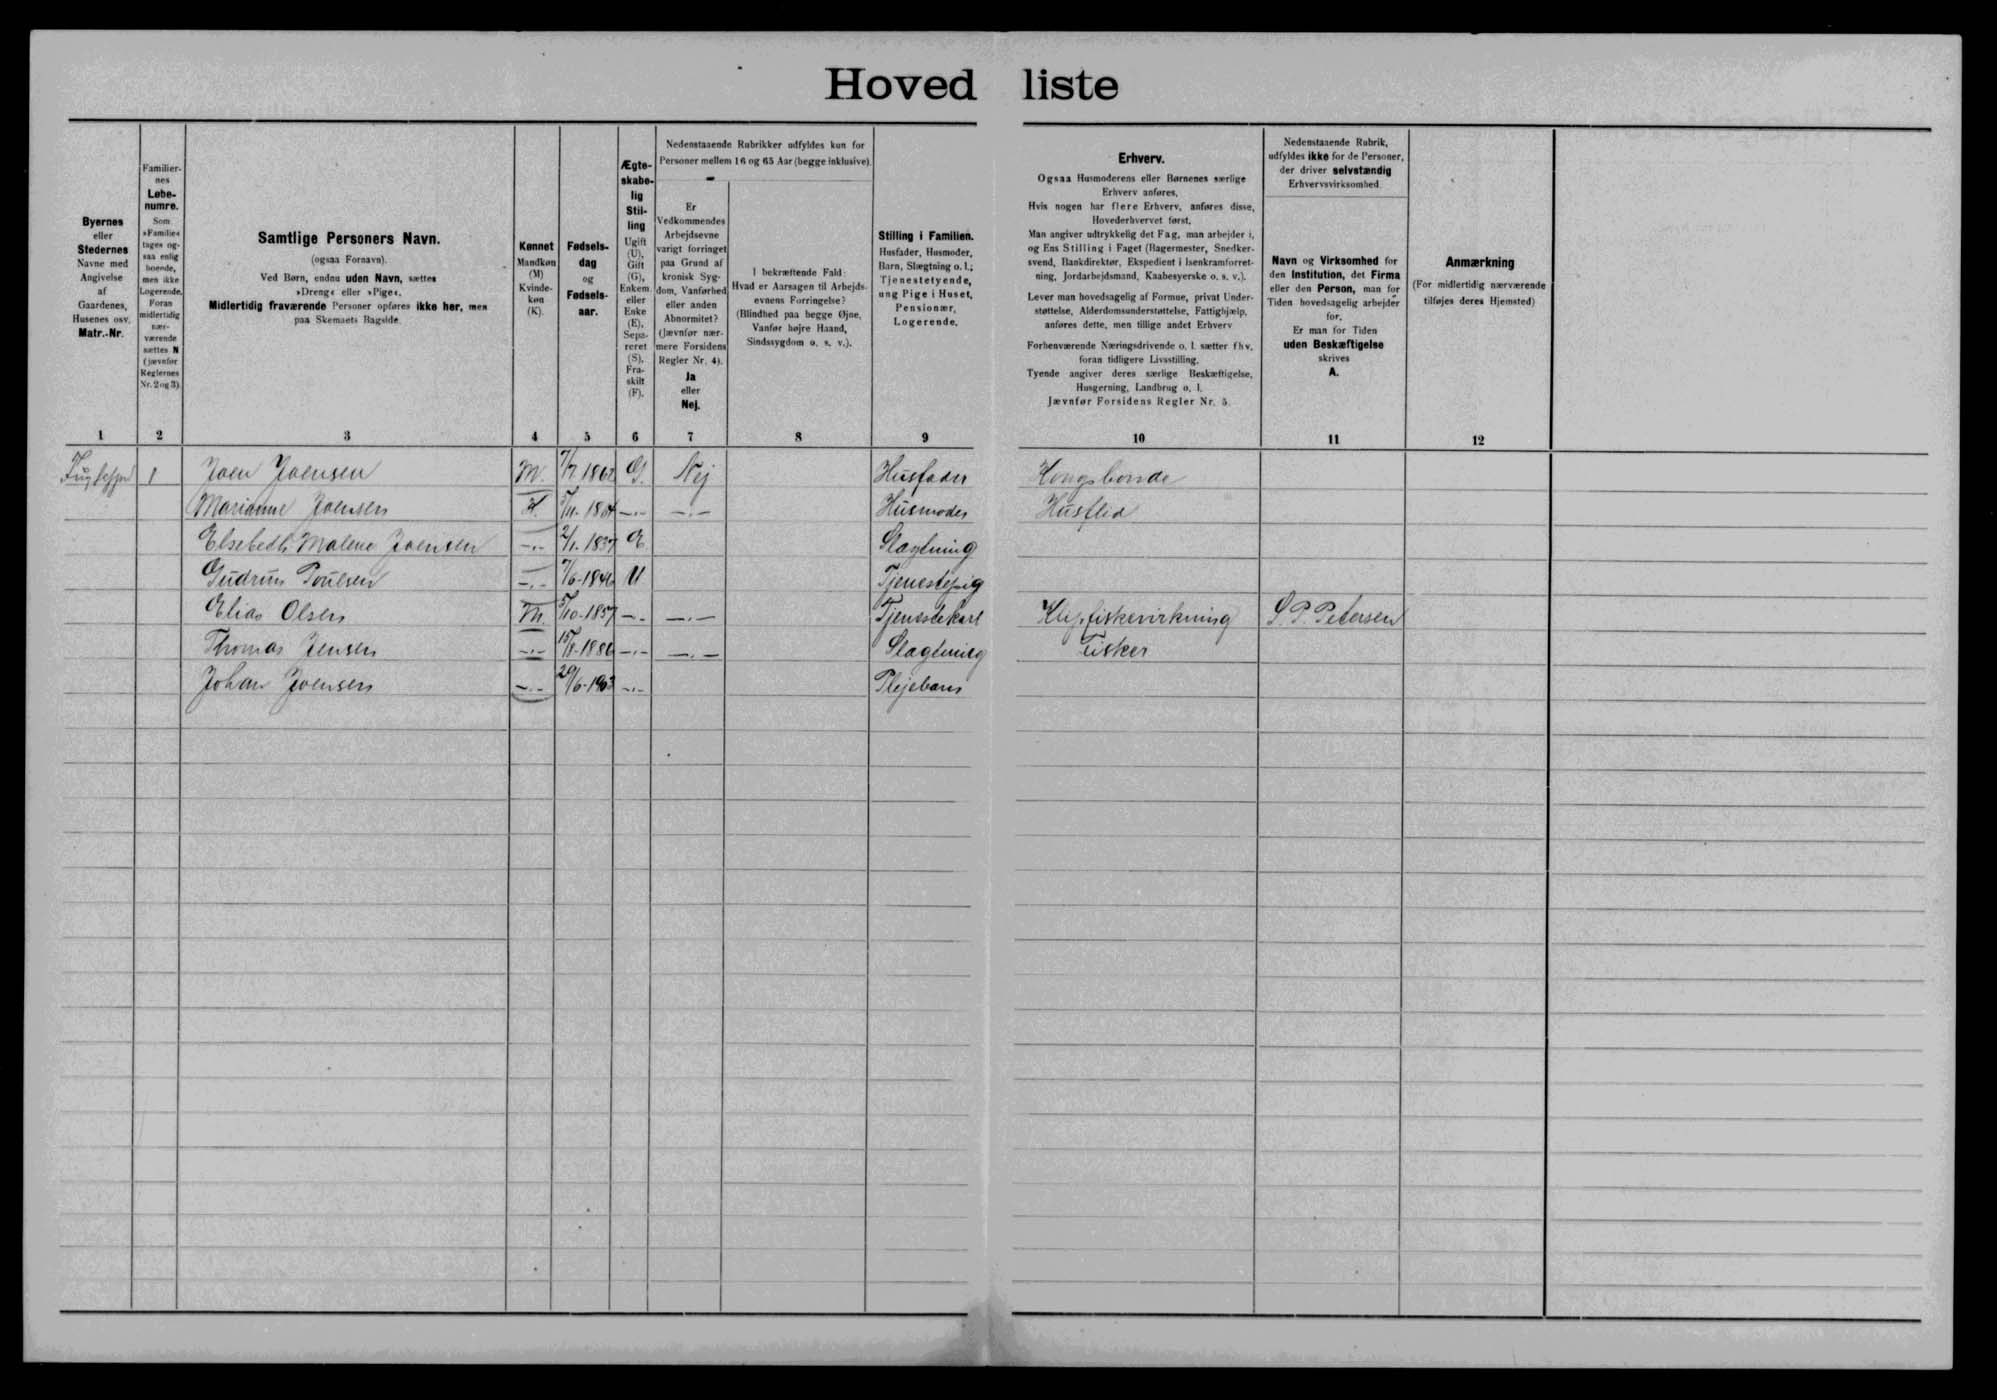 Hovedliste
Byernes
eller
Stedernes
Navne med
Angivelse
af
Gaardenes,
Husenes osv.
Matr.-Nr.
Familier-
nes
Løbe-
numre.
Som
»Familie«
tages og-
saa enlig
boende,
men ikke
Logerende.
Foran
midlertidig
nær-
værende
sættes N
(jævnfør
Reglernes
Nr. 2 og 3).
Samtlige Personers Navn.
(ogsaa Fornavn).
Ved Børn, endnu uden Navn, sættes
»Dreng« eller »Pige«.
Midlertidig fraværende Personer opføres ikke her, men
paa Skemaets Bagside.
Kønnet
Mandkøn
(M)
Kvinde-
køn
(K).
Fødsels-
dag
og
Fødsels-
aar.
Ægte-
skabe-
lig
Stil-
ling
Ugift
(U),
Gift
(G),
Enkem.
eller
Enke
(E),
Sepa-
reret
(S),
Fra-
skilt
(F).
Nedenstaaende Rubrikker udfyldes kun for
Personer mellem 16 og 65 Aar (begge inklusive).
Er
Vedkommendes
Arbejdsevne
varigt forringet
paa Grund af
kronisk Syg-
dom, Vanførhed
eller anden
Abnormitet?
(Jævnfør nær-
mere Forsidens
Regler Nr. 4).
Ja
eller
Nej.
I bekræftende Fald:
Hvad er Aarsagen til Arbejds-
evnens Forringelse?
(Blindhed paa begge Øjne,
Vanfør højre Haand,
Sindssygdom o. s. v.).
Stilling i Familien.
Husfader, Husmoder,
Barn, Slægtning o. l.;
Tjenestetyende,
ung Pige i Huset,
Pensionær,
Logerende.
Erhverv.
Ogsaa Husmoderens eller Børnenes særlige
Erhverv anføres.
Hvis nogen har flere Erhverv, anføres disse,
Hovederhvervet først.
Man angiver udtrykkelig det Fag, man arbejder i,
og Ens Stilling i Faget (Bagermester, Snedker-
svend, Bankdirektør, Ekspedient i Isenkramforret-
ning, Jordarbejdsmand, Kaabesyerske o. s. v.).
Lever man hovedsagelig af Formue, privat Under-
støttelse, Alderdomsunderstøttelse, Fattighjælp,
anføres dette, men tillige andet Erhverv
Forhenværende Næringsdrivende o. l. sætter fhv.
foran tidligere Livsstilling.
Tyende angiver deres særlige Beskæftigelse,
Husgerning, Landbrug o. l.
Jævnfør Forsidens Regler Nr. 5.
Nedenstaaende Rubrik,
udfyldes ikke for de Personer,
der driver selvstændig
Erhvervsvirksomhed.
Navn og Virksomhed for
den Institution, det Firma
eller den Person, man for
Tiden hovedsagelig arbejder
for.
Er man for Tiden
uden Beskæftigelse
skrives
A.
Anmærkning
(For midlertidig nærværende
tilføjes deres Hjemsted)
1 2 3 4 5 6 7 8 9 10 11 12
1 Joen Joensen M. 7/7 1862 G. Nej Husfader Kongsbonde
Marianne Joensen K. 5/11-1864 -.- -.- Husmoder Husflid
Elsebeth Malene Joensen -.- 2/1-1837 E Slægtning
Gudrun Poulsen -.- 7/6-1846 U Tjenestepig
Elias Olsen M. 5/10-1857 -.- -.- Tjenestekarl Klipfiskevirkning S. P. Petersen
Thomas Jensen -.- 15/8-1886 -.- -.- Slægtning Fisker
Johan Joensen -.- 20/6-1903 -.- Plejebarn